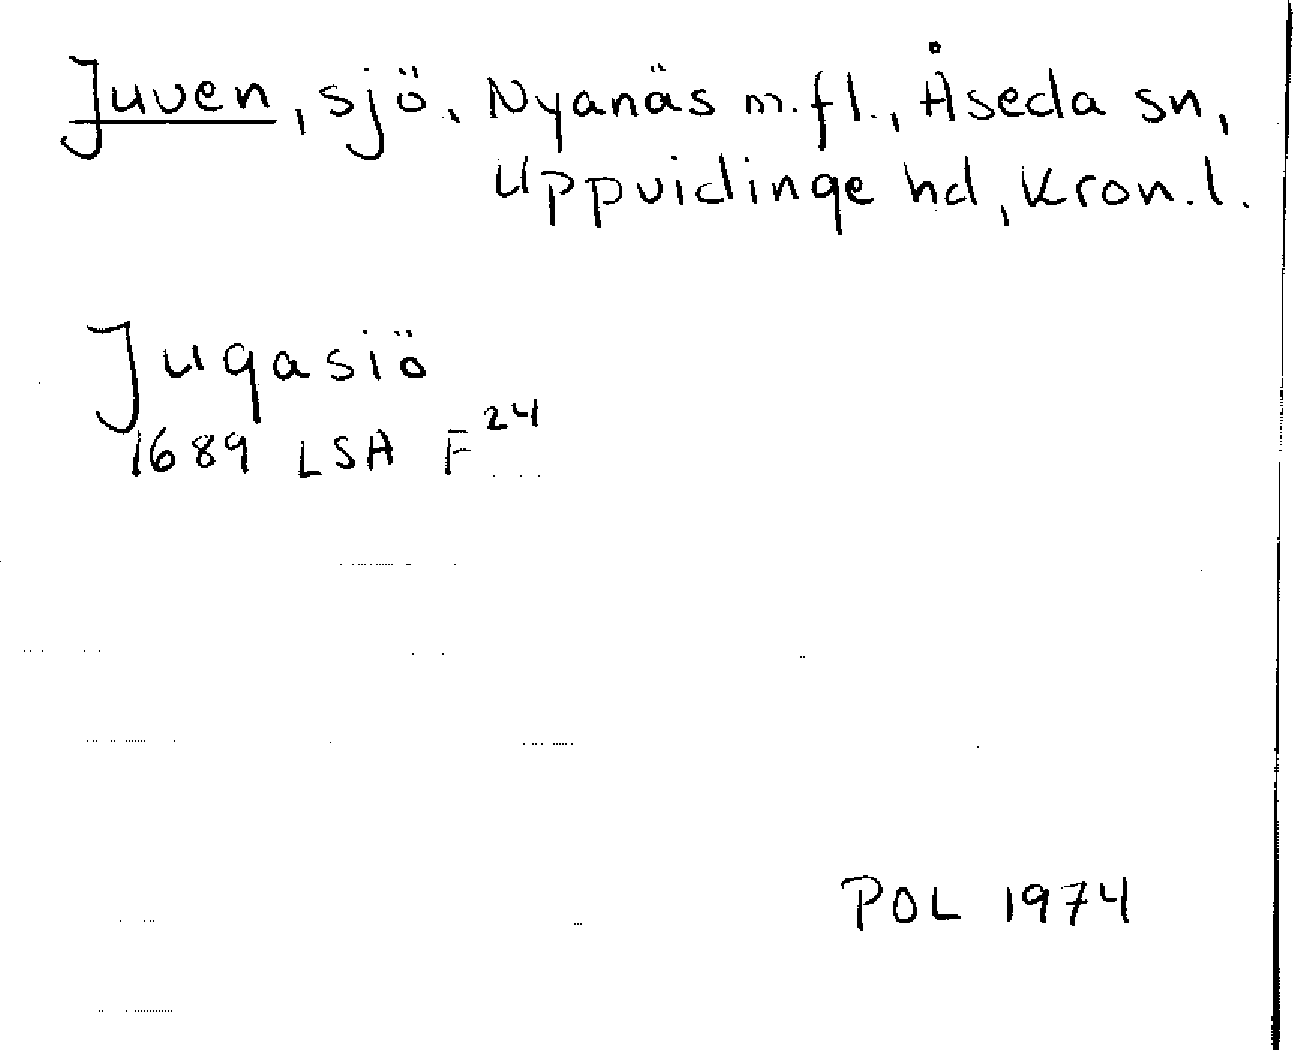 Juven, sjö, Nyanäs m.fl., Åseda sn,
Uppvidinge hd, Kron.l.
Jugasiö
1689 LSA F24
POL 1974